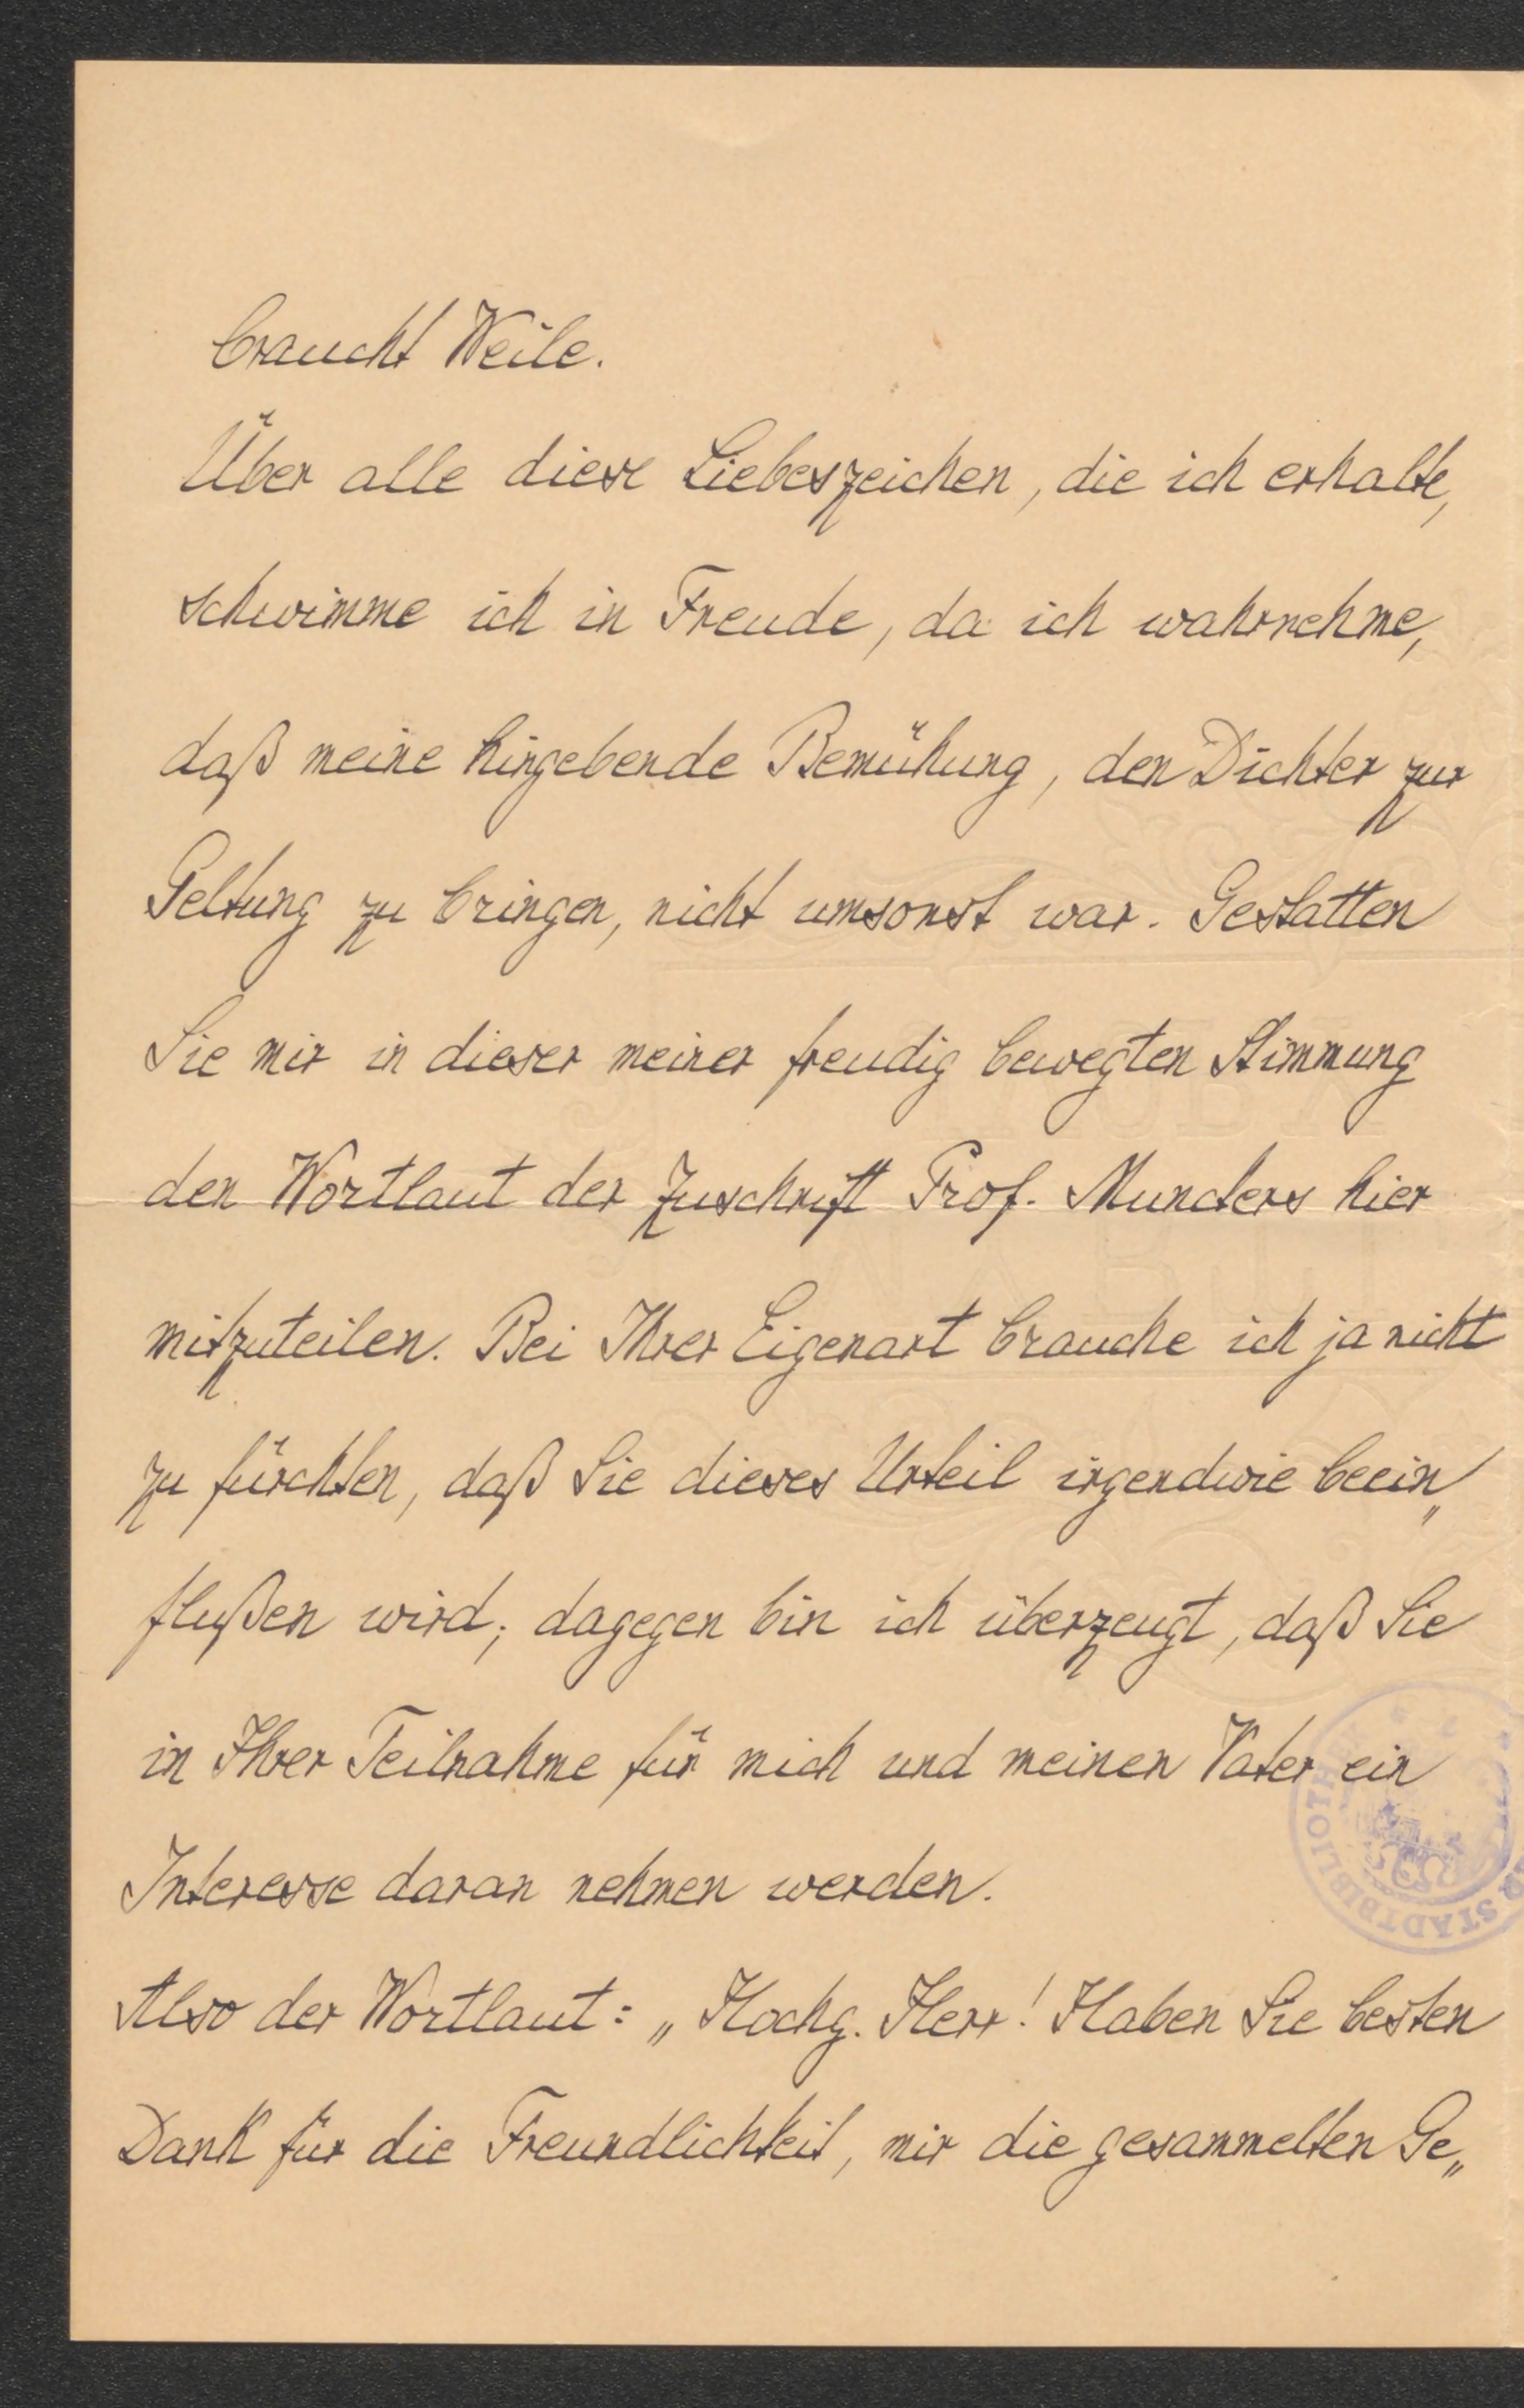 braucht Weile.
Über alle diese Liebeszeichen, die ich erhalte,
schwimme ich in Freude, da ich wahrnehme,
daß meine hingebende Bemühung, den Dichter zur
Geltung zu bringen, nicht umsonst war. Gestatten
Sie mir in dieser meiner freudig bewegten Stimmung
den Wortlaut der Zuschrift Prof. Munckers hier
mitzuteilen. Bei Ihrer Eigenart brauche ich ja nicht
zu fürchten, daß Sie dieses Urteil irgendwie beein„
flußen wird; dagegen bin ich überzeugt, daß Sie
in Ihrer Teilnahme für mich und meinen Vater ein
Interesse daran nehmen werden.
Also der Wortlaut: „Hochg. Herr! Haben Sie besten
Dank für die Freundlichkeit, mir die gesammelten Ge„
STADTBIBLIOTH